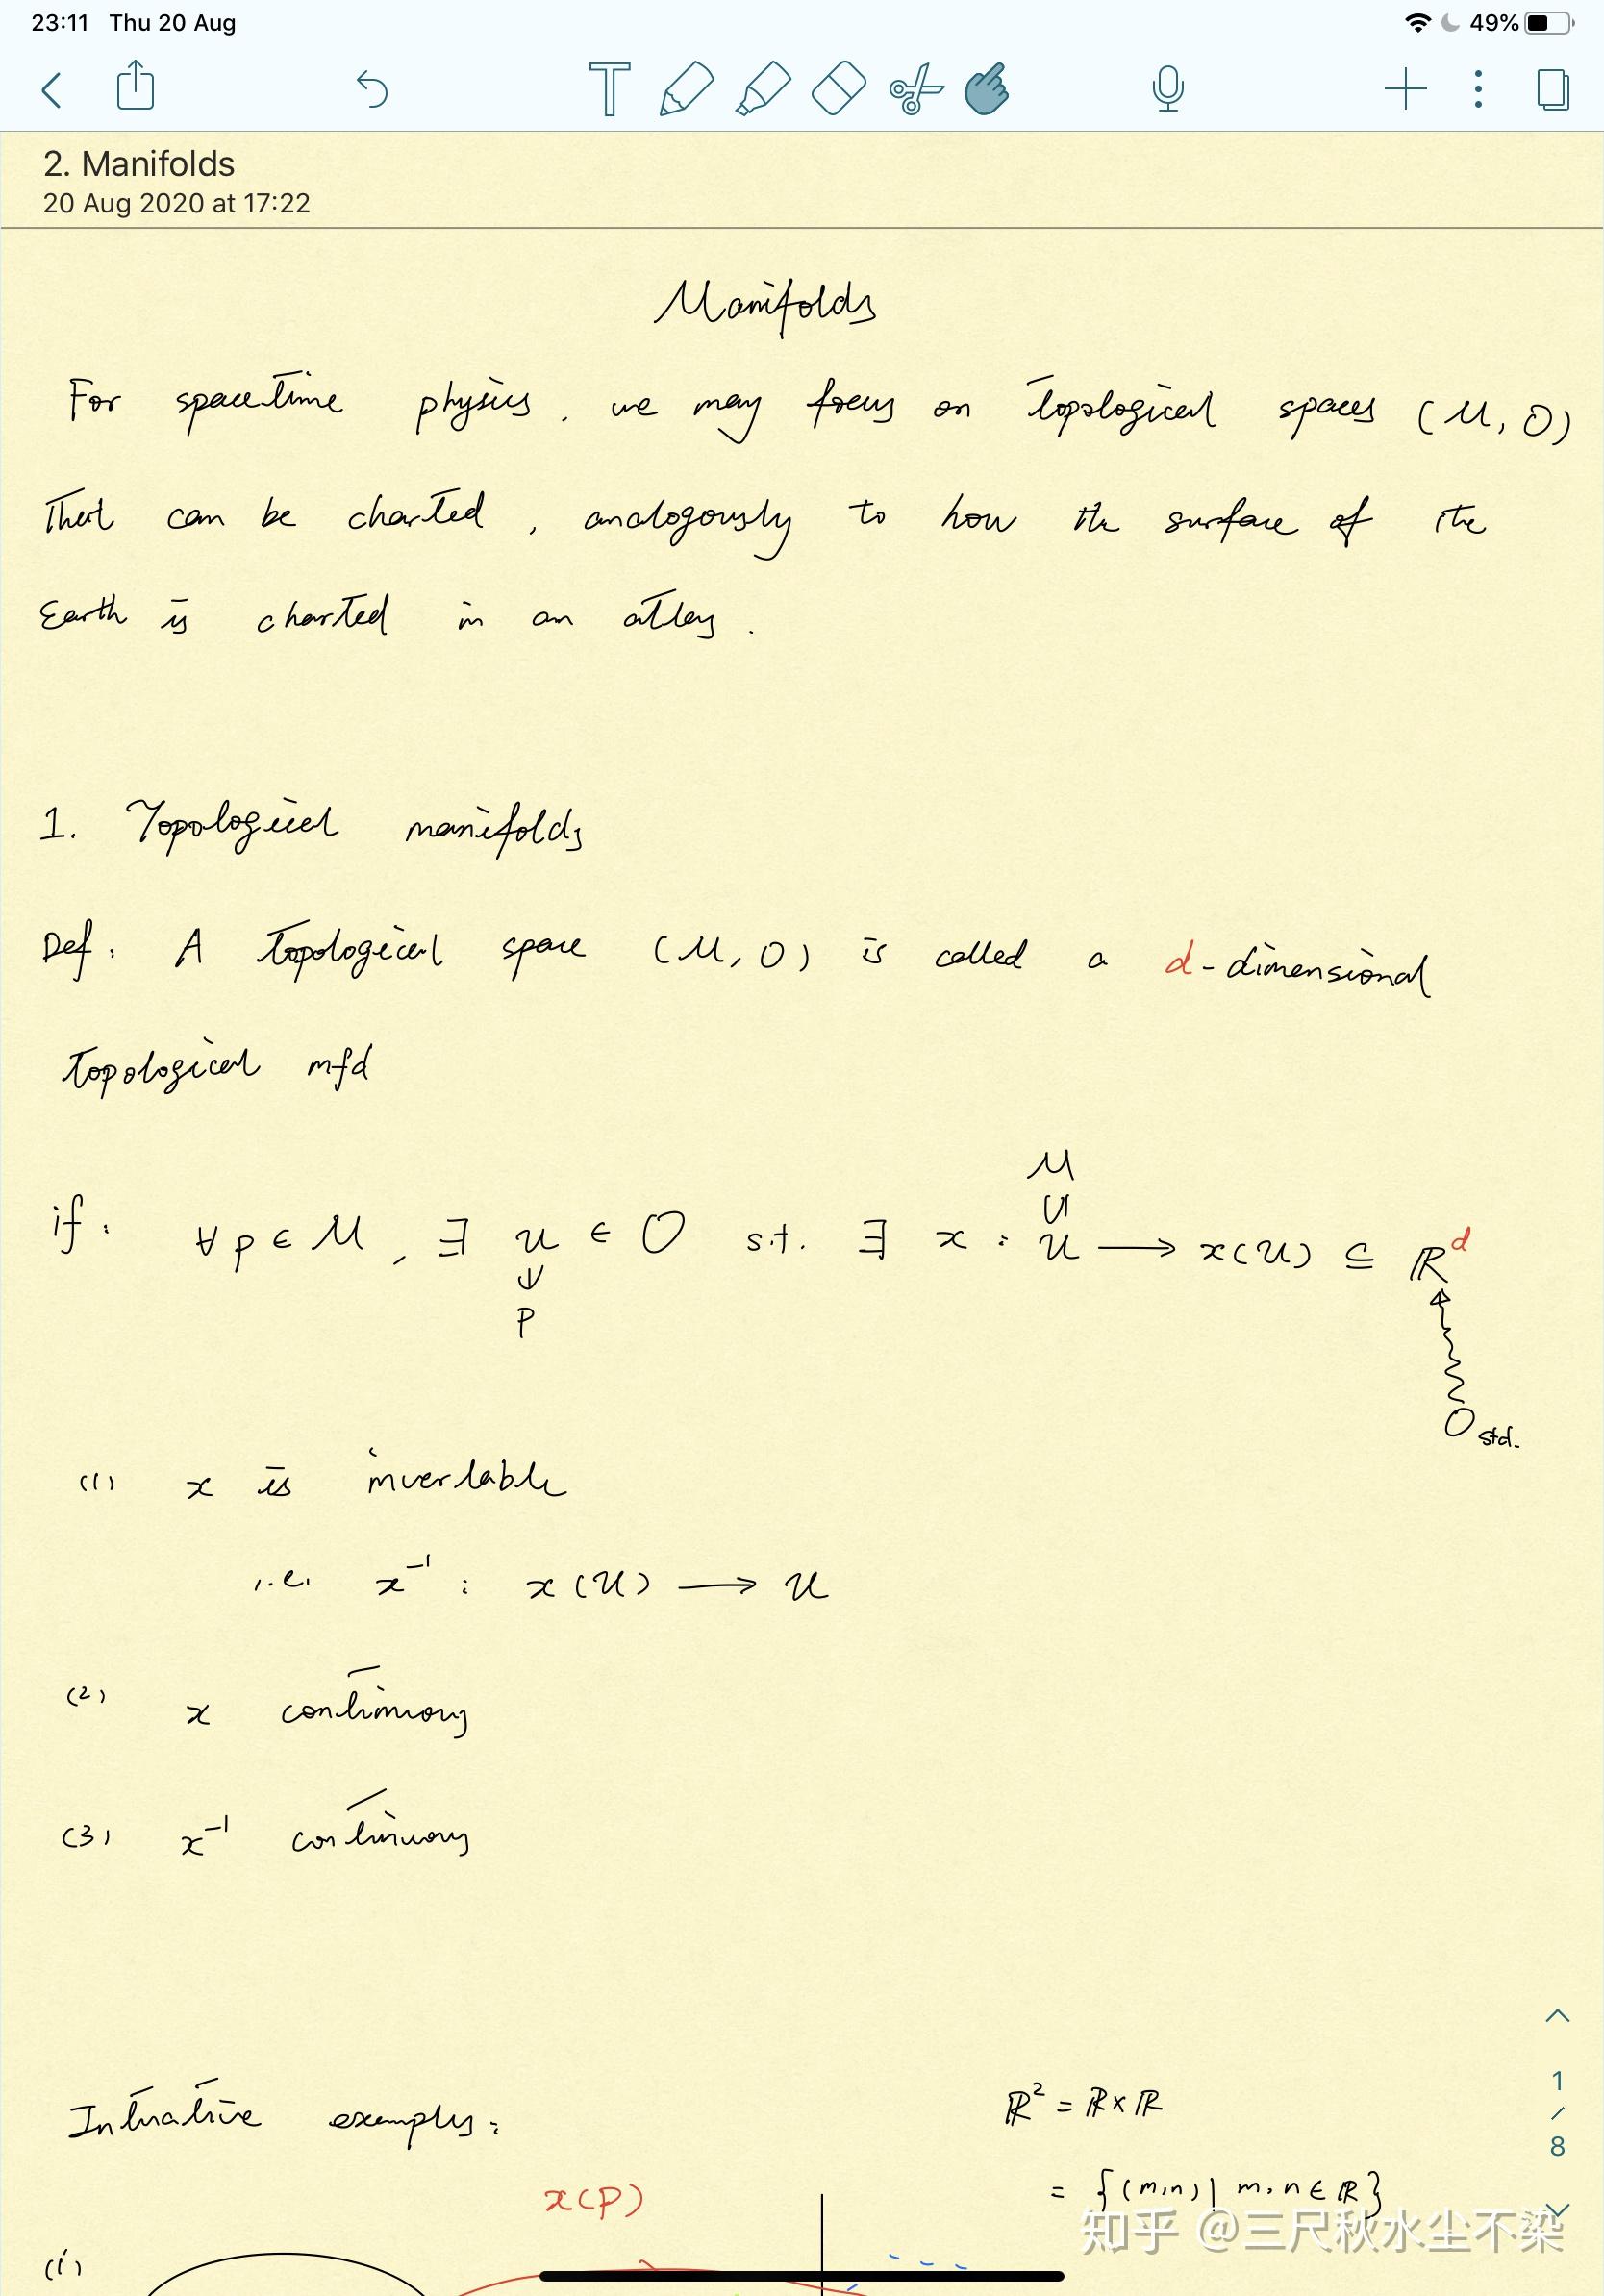 23:11 Thu 20 Aug 49%
2. Manifolds
20 Aug 2020 at 17:22
Manifolds
For spacetime physics, we may focus on topological spaces (M, O)
that can be charted, analogously to how the surface of the
Earth is charted in an atlas.
1. Topological manifolds
Def: A topological space (M, O) is called a d-dimensional
topological mfd
M
∪|
if: ∀ p ∈ M, ∃ U ∈ O s.t. ∃ x : U → x(U) ⊆ ℝ^d
↓
P
O std.
(1) x is invertable
i.e. x⁻¹ : x(U) → U
(2) x continuous
(3) x⁻¹ continuous
Intuative examples:
ℝ² = ℝ×ℝ
= {(m,n) | m,n ∈ ℝ}
x(P)
(i)
1
/
8
知乎 @三尺秋水尘不染